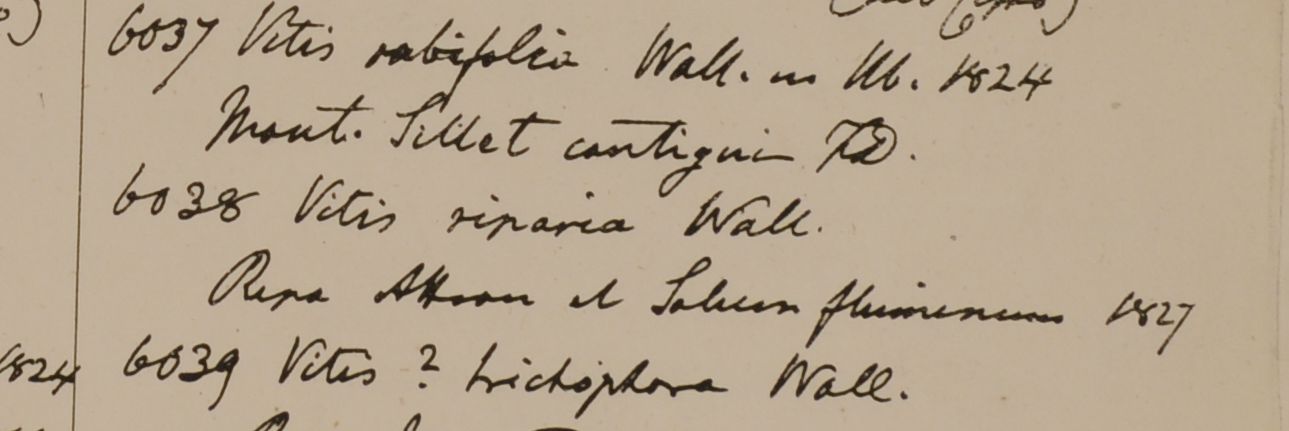 6037 Vitis rubifolia Wall. in Hb. 1824
Mont. Sillet contiguis FD.
6038 Vitis riparia Wall.
Ripa Attran et Saluen fluminum 1827
1824
6039 Vitis ? trichophora Wall.